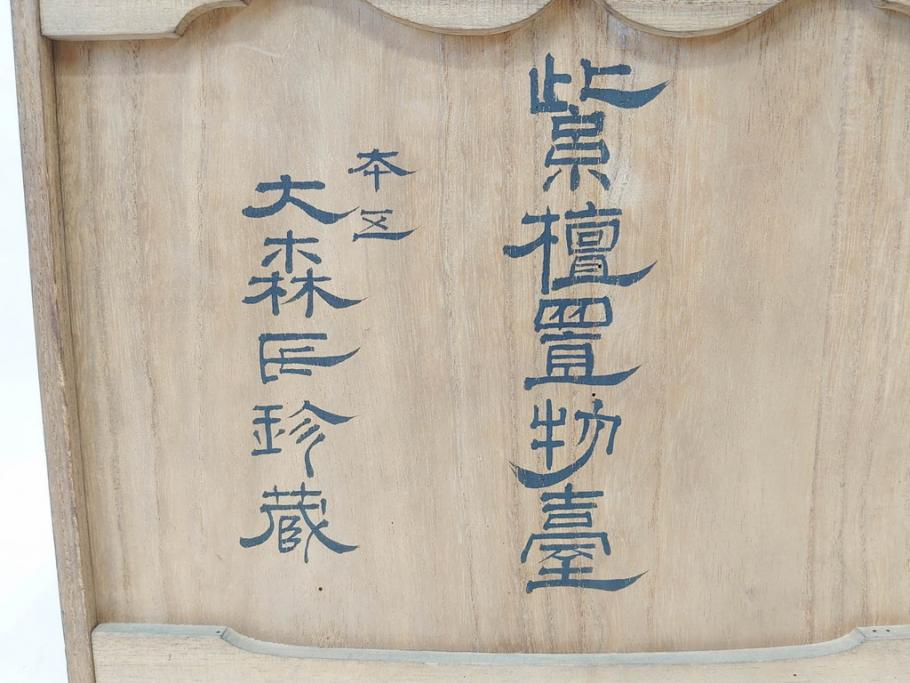 紫檀置物臺
本区
大森氏珍蔵